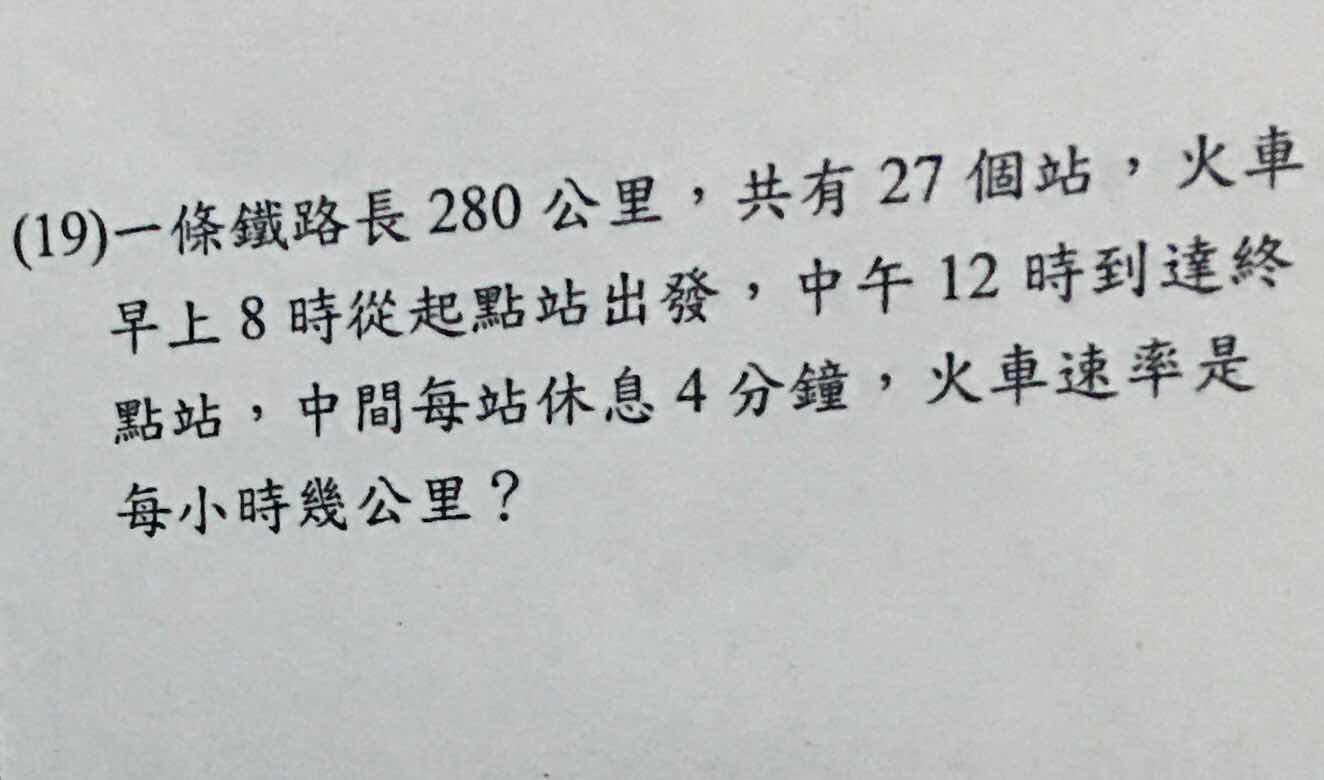 (19)一條鐵路長 280 公里，共有 27 個站，火車
早上 8 時從起點站出發，中午 12 時到達終
點站，中間每站休息 4 分鐘，火車速率是
每小時幾公里？